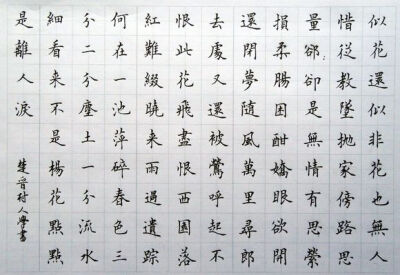 似花還似非花也無人
惜從教墜拋家傍路思
量郤卻是無情有思縈
損柔腸困酣嬌眼欲開
還閉夢隨風萬里尋郎
去處又還被鶯呼起不
恨此花飛盡恨西園落
紅難綴曉来雨過遺踪
何在一池萍碎春色三
分二分塵土一分流水
細看来不是楊花點點
是離人淚
楚音村人學書